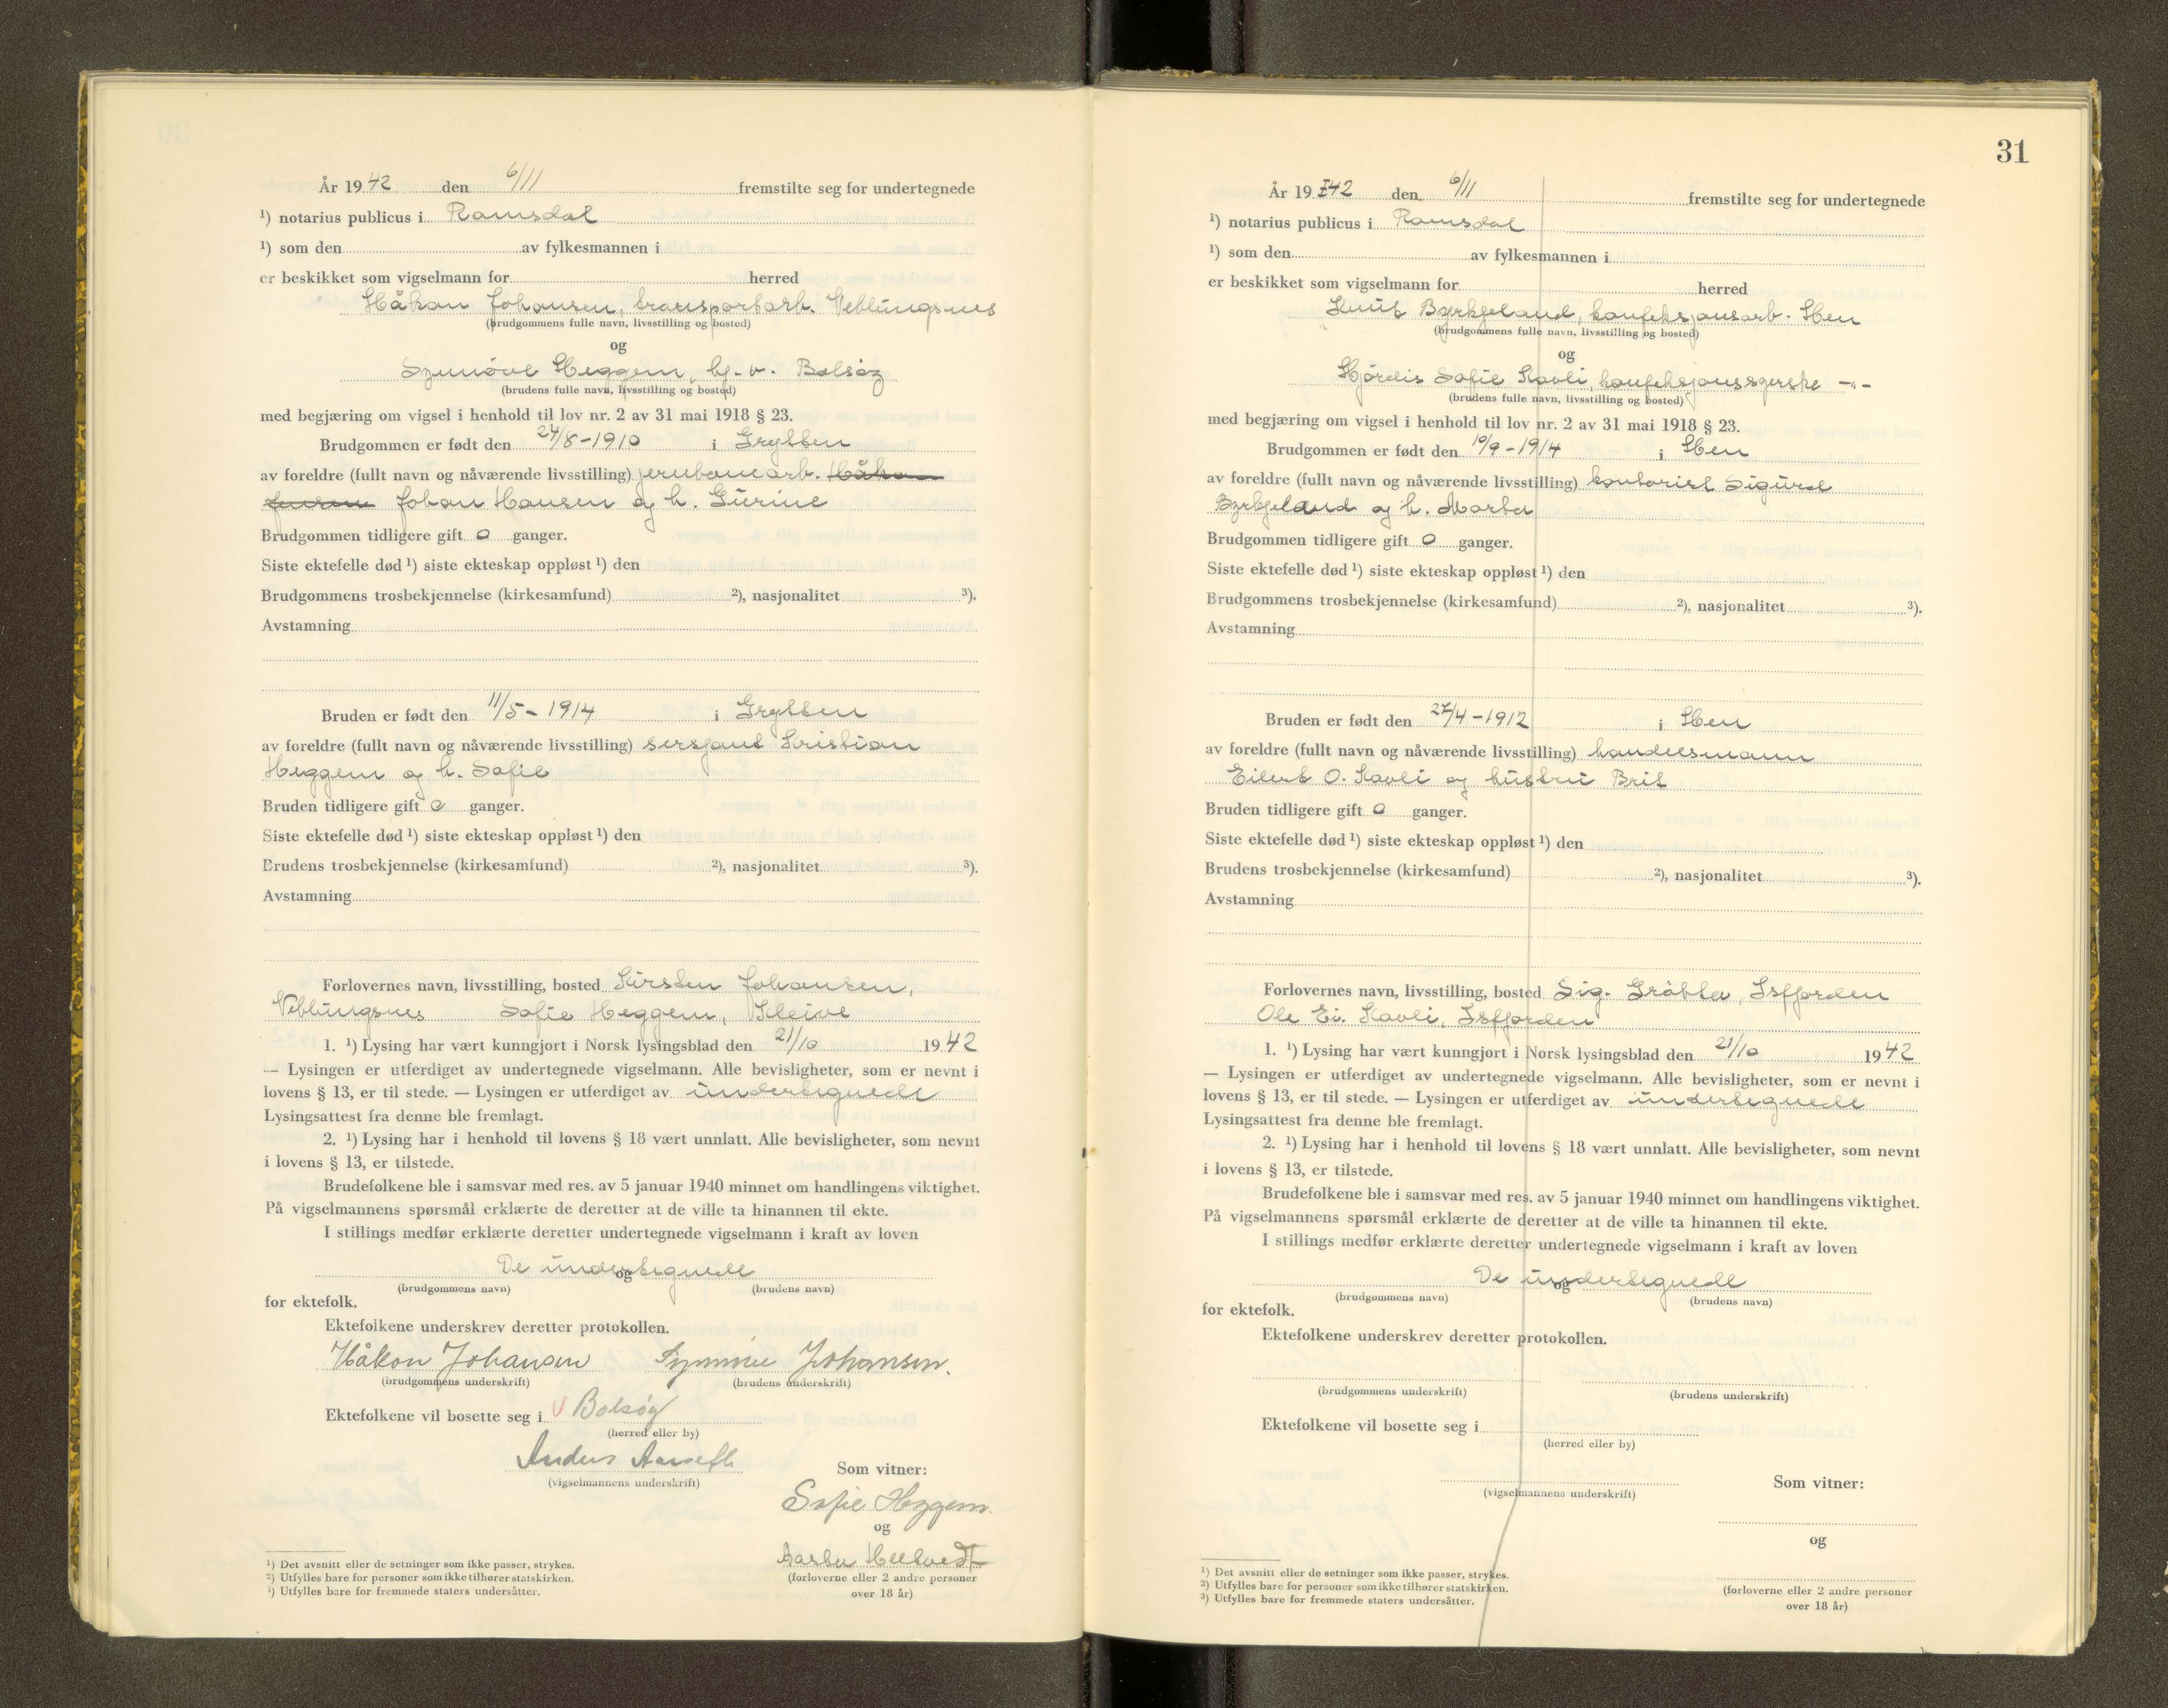 År 1942 den 6/11 fremstilte seg for undertegnede
¹) notarius publicus i Romsdal
¹) som den av fylkesmannen i
er beskikket som vigselmann for herred
Håkon Johansen, transportarb. Veblungsnes
(brudgommens fulle navn, livsstilling og bosted)
og
Synnöve Heggem, hj. v. Bolsöy
(brudens fulle navn, livsstilling og bosted)
med begjæring om vigsel i henhold til lov nr. 2 av 31 mai 1918 § 23.
Brudgommen er født den 24/8-1910 i Grytten
av foreldre (fullt navn og nåværende livsstilling) jernbanearb.
Johan Hansen og h. Gurine
Brudgommen tidligere gift 0 ganger.
Siste ektefelle død ¹) siste ekteskap oppløst ¹) den
Brudgommens trosbekjennelse (kirkesamfund) ²), nasjonalitet ³).
Avstamning
Bruden er født den 11/5-1914 i Grytten
av foreldre (fullt navn og nåværende livsstilling) sersjant Kristian
Heggem og h. Sofie
Bruden tidligere gift 0 ganger.
Siste ektefelle død ¹) siste ekteskap oppløst ¹) den
Brudens trosbekjennelse (kirkesamfund) ²), nasjonalitet ³).
Avstamning
Forlovernes navn, livsstilling, bosted Kirsten Johansen,
Veblungsnes Sofie Heggem, Kleive
1. ¹) Lysing har vært kunngjort i Norsk lysingsblad den 21/10 1942
— Lysingen er utferdiget av undertegnede vigselmann. Alle bevisligheter, som er nevnt i
lovens § 13, er til stede. — Lysingen er utferdiget av undertegnede
Lysingsattest fra denne ble fremlagt.
2. ¹) Lysing har i henhold til lovens § 18 vært unnlatt. Alle bevisligheter, som nevnt
i lovens § 13, er tilstede.
Brudefolkene ble i samsvar med res. av 5 januar 1940 minnet om handlingens viktighet.
På vigselmannens spørsmål erklærte de deretter at de ville ta hinannen til ekte.
I stillings medfør erklærte deretter undertegnede vigselmann i kraft av loven
De undertegnede
og
(brudgommens navn) (brudens navn)
for ektefolk.
Ektefolkene underskrev deretter protokollen.
Håkon Johansen Synnöve Johansen.
(brudgommens underskrift) (brudens underskrift)
Ektefolkene vil bosette seg i V Bolsöy
(herred eller by)
Anders Aarseth
(vigselmannens underskrift)
Som vitner:
Sofie Heggem.
og
Aasta
(forloverne eller 2 andre personer
over 18 år)
¹) Det avsnitt eller de setninger som ikke passer, strykes.
²) Utfylles bare for personer som ikke tilhører statskirken.
³) Utfylles bare for fremmede staters undersåtter.
31
År 1942 den 6/11 fremstilte seg for undertegnede
¹) notarius publicus i Romsdal
¹) som den av fylkesmannen i
er beskikket som vigselmann for herred
Knut Byrkjeland, konfeksjonsarb. Hen
(brudgommens fulle navn, livsstilling og bosted)
og
Hjördis Sofie Kavli, konfeksjonssyerske -"-
(brudens fulle navn, livsstilling og bosted)
med begjæring om vigsel i henhold til lov nr. 2 av 31 mai 1918 § 23.
Brudgommen er født den 10/9-1914 i Hen
av foreldre (fullt navn og nåværende livsstilling) kontorist Sigurd
Byrkjeland og h. Marta
Brudgommen tidligere gift 0 ganger.
Siste ektefelle død ¹) siste ekteskap oppløst ¹) den
Brudgommens trosbekjennelse (kirkesamfund) ²), nasjonalitet ³).
Avstamning
Bruden er født den 27/4-1912 i Hen
av foreldre (fullt navn og nåværende livsstilling) handelsmann
Eilert O. Kavli og hustru Brit
Bruden tidligere gift 0 ganger.
Siste ektefelle død ¹) siste ekteskap oppløst ¹) den
Brudens trosbekjennelse (kirkesamfund) ²), nasjonalitet ³).
Avstamning
Forlovernes navn, livsstilling, bosted Sig. Grötta, Isfjorden
Ole Ei. Kavli, Isfjorden
1. ¹) Lysing har vært kunngjort i Norsk lysingsblad den 21/10 1942
— Lysingen er utferdiget av undertegnede vigselmann. Alle bevisligheter, som er nevnt i
lovens § 13, er til stede. — Lysingen er utferdiget av undertegnede
Lysingsattest fra denne ble fremlagt.
2. ¹) Lysing har i henhold til lovens § 18 vært unnlatt. Alle bevisligheter, som nevnt
i lovens § 13, er tilstede.
Brudefolkene ble i samsvar med res. av 5 januar 1940 minnet om handlingens viktighet.
På vigselmannens spørsmål erklærte de deretter at de ville ta hinannen til ekte.
I stillings medfør erklærte deretter undertegnede vigselmann i kraft av loven
De undertegnede
og
(brudgommens navn) (brudens navn)
for ektefolk.
Ektefolkene underskrev deretter protokollen.
(brudgommens underskrift) (brudens underskrift)
Ektefolkene vil bosette seg i
(herred eller by)
(vigselmannens underskrift)
Som vitner:
og
(forloverne eller 2 andre personer
over 18 år)
¹) Det avsnitt eller de setninger som ikke passer, strykes.
²) Utfylles bare for personer som ikke tilhører statskirken.
³) Utfylles bare for fremmede staters undersåtter.